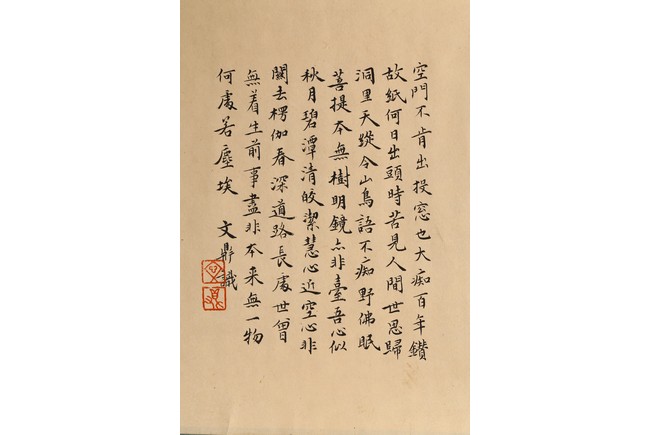 空門不肯出投窓也大痴百年鑽
故紙何日出頭時苦見人間世思歸
洞里天蹤令山鳥語不痴野佛眠
菩提本無樹明鏡亦非臺吾心似
秋月碧潭清皎潔慧心近空心非
關去楞伽春深道路長處世曾
無着生前事盡非本来無一物
何處若塵埃 文鼎識